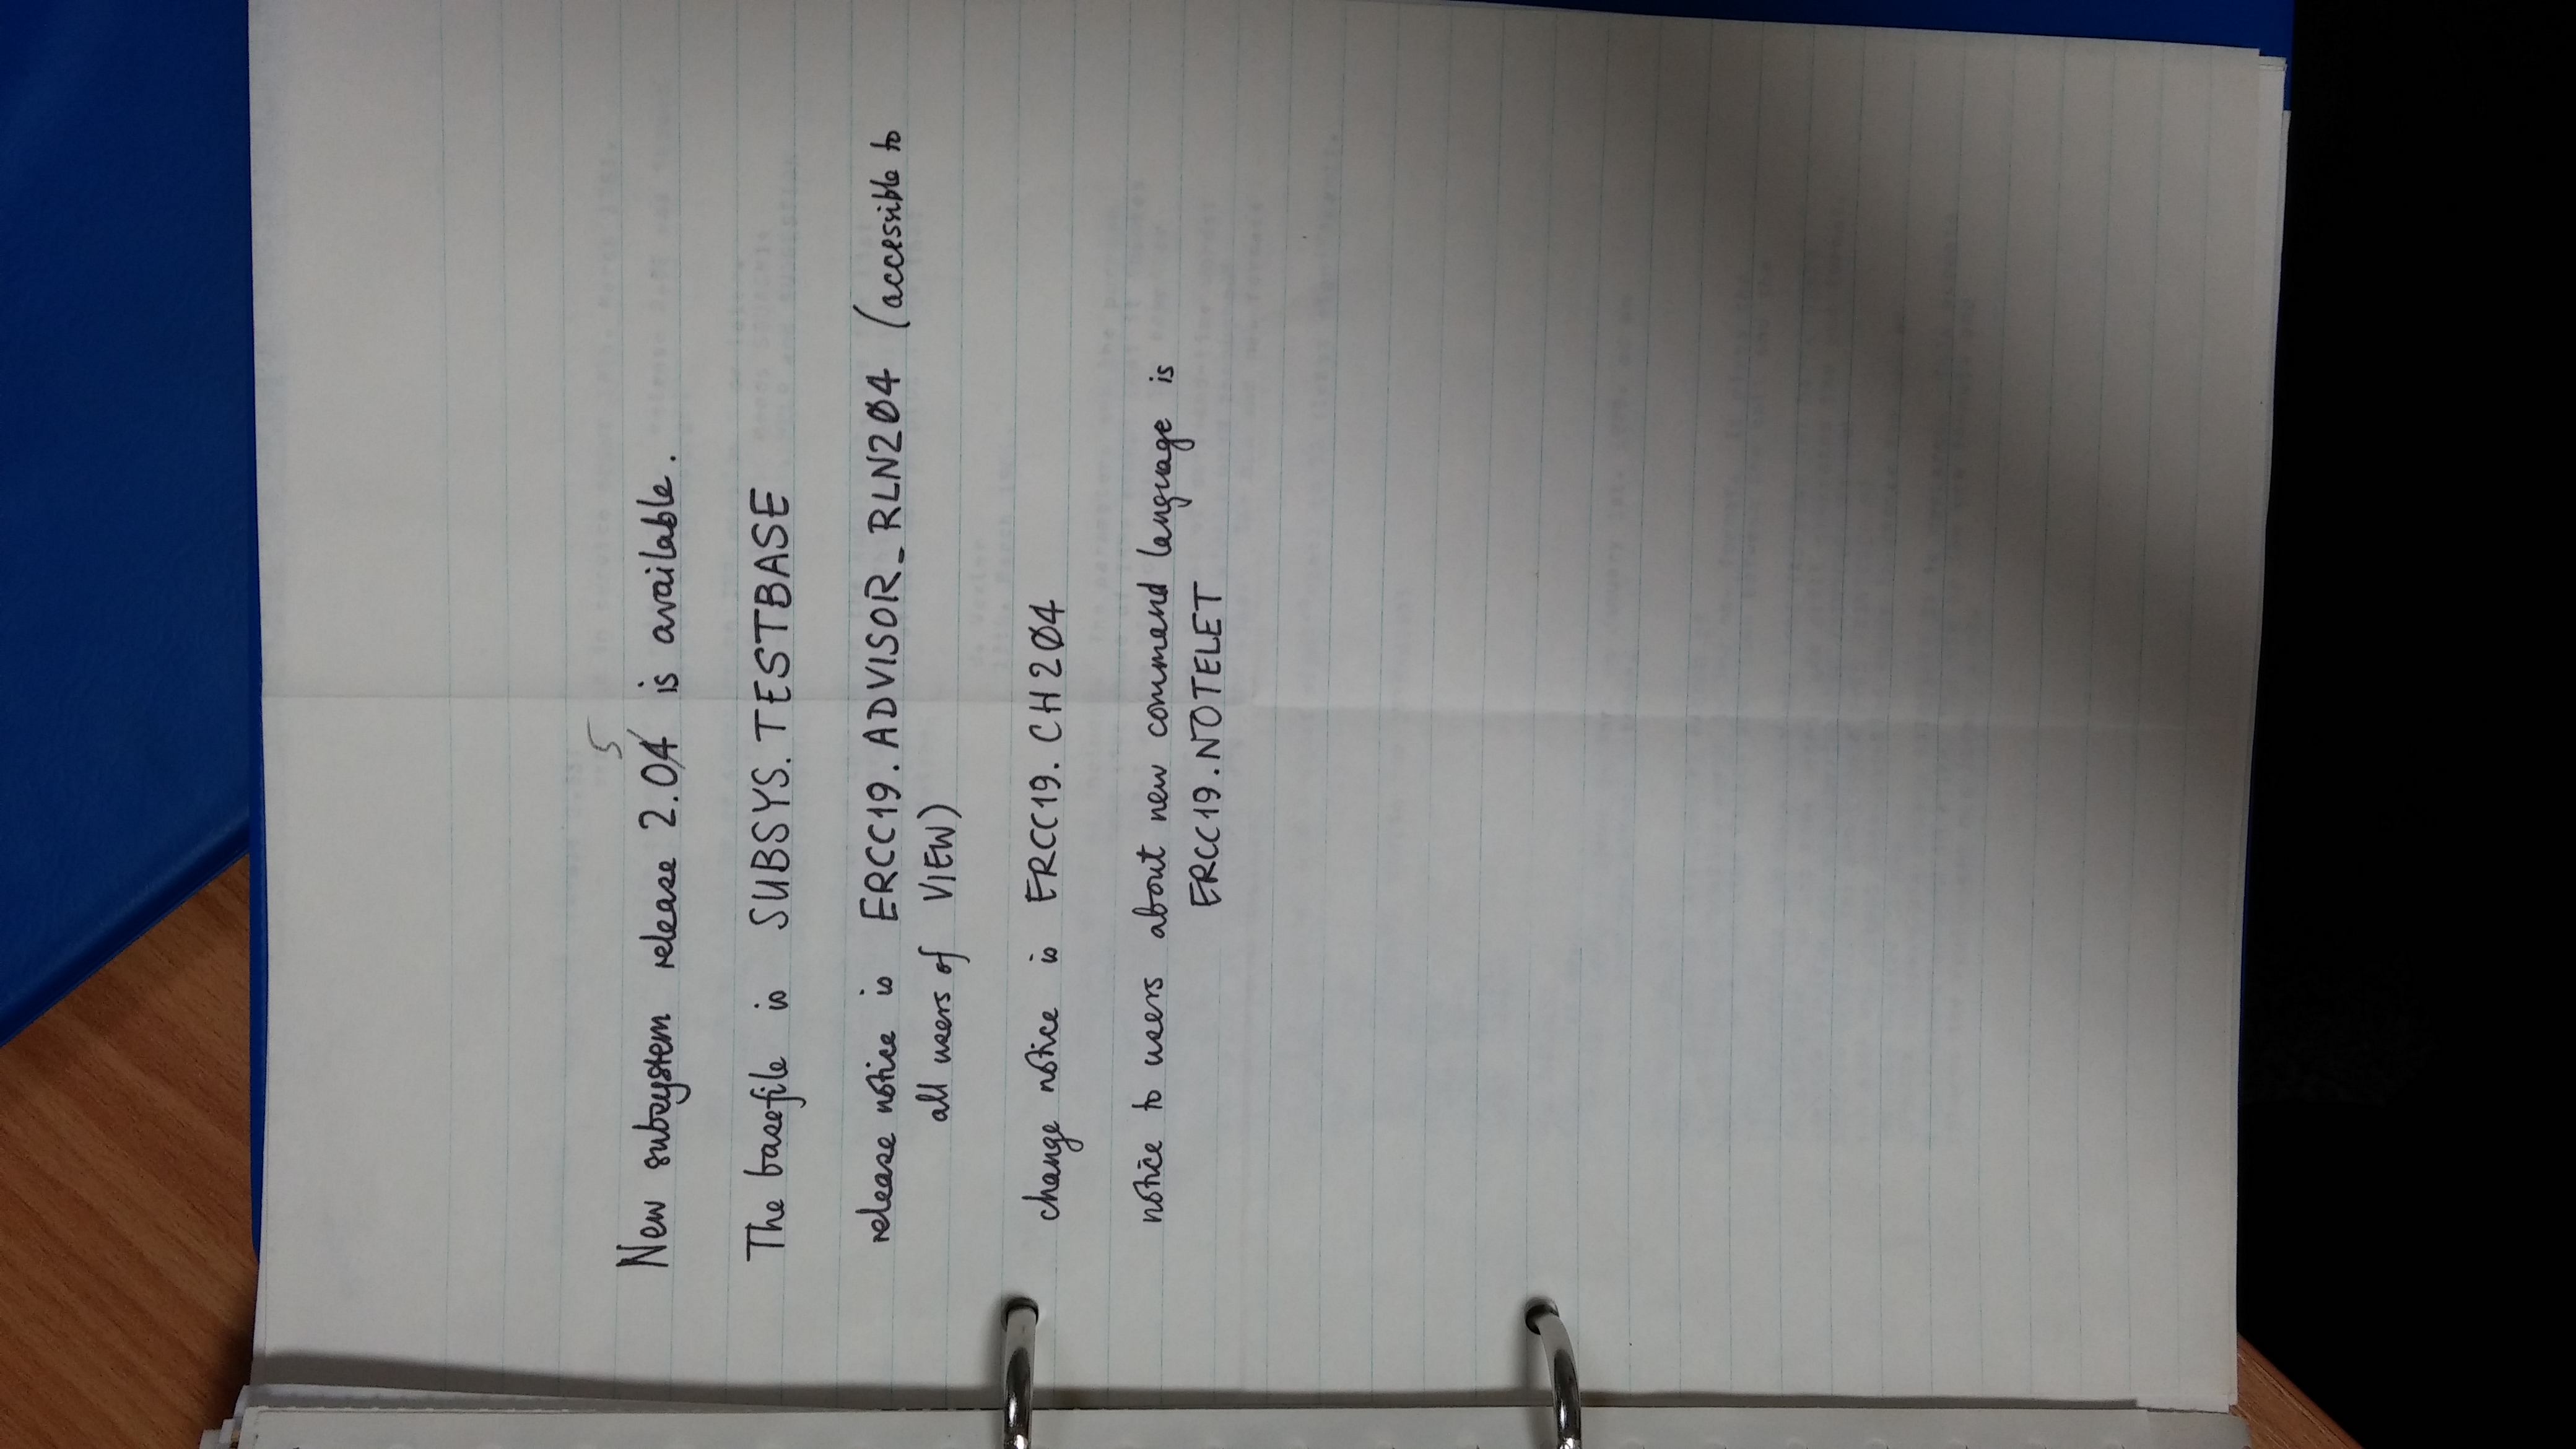 5
New subsystem release 2.04 is available.
The basefile is SUBSYS.TESTBASE
release notice is ERCC19.ADVISOR_RLN204 (accessible to
all users of VIEW)
change notice is ERCC19.CH204
notice to users about new command language is
ERCC19.NOTELET